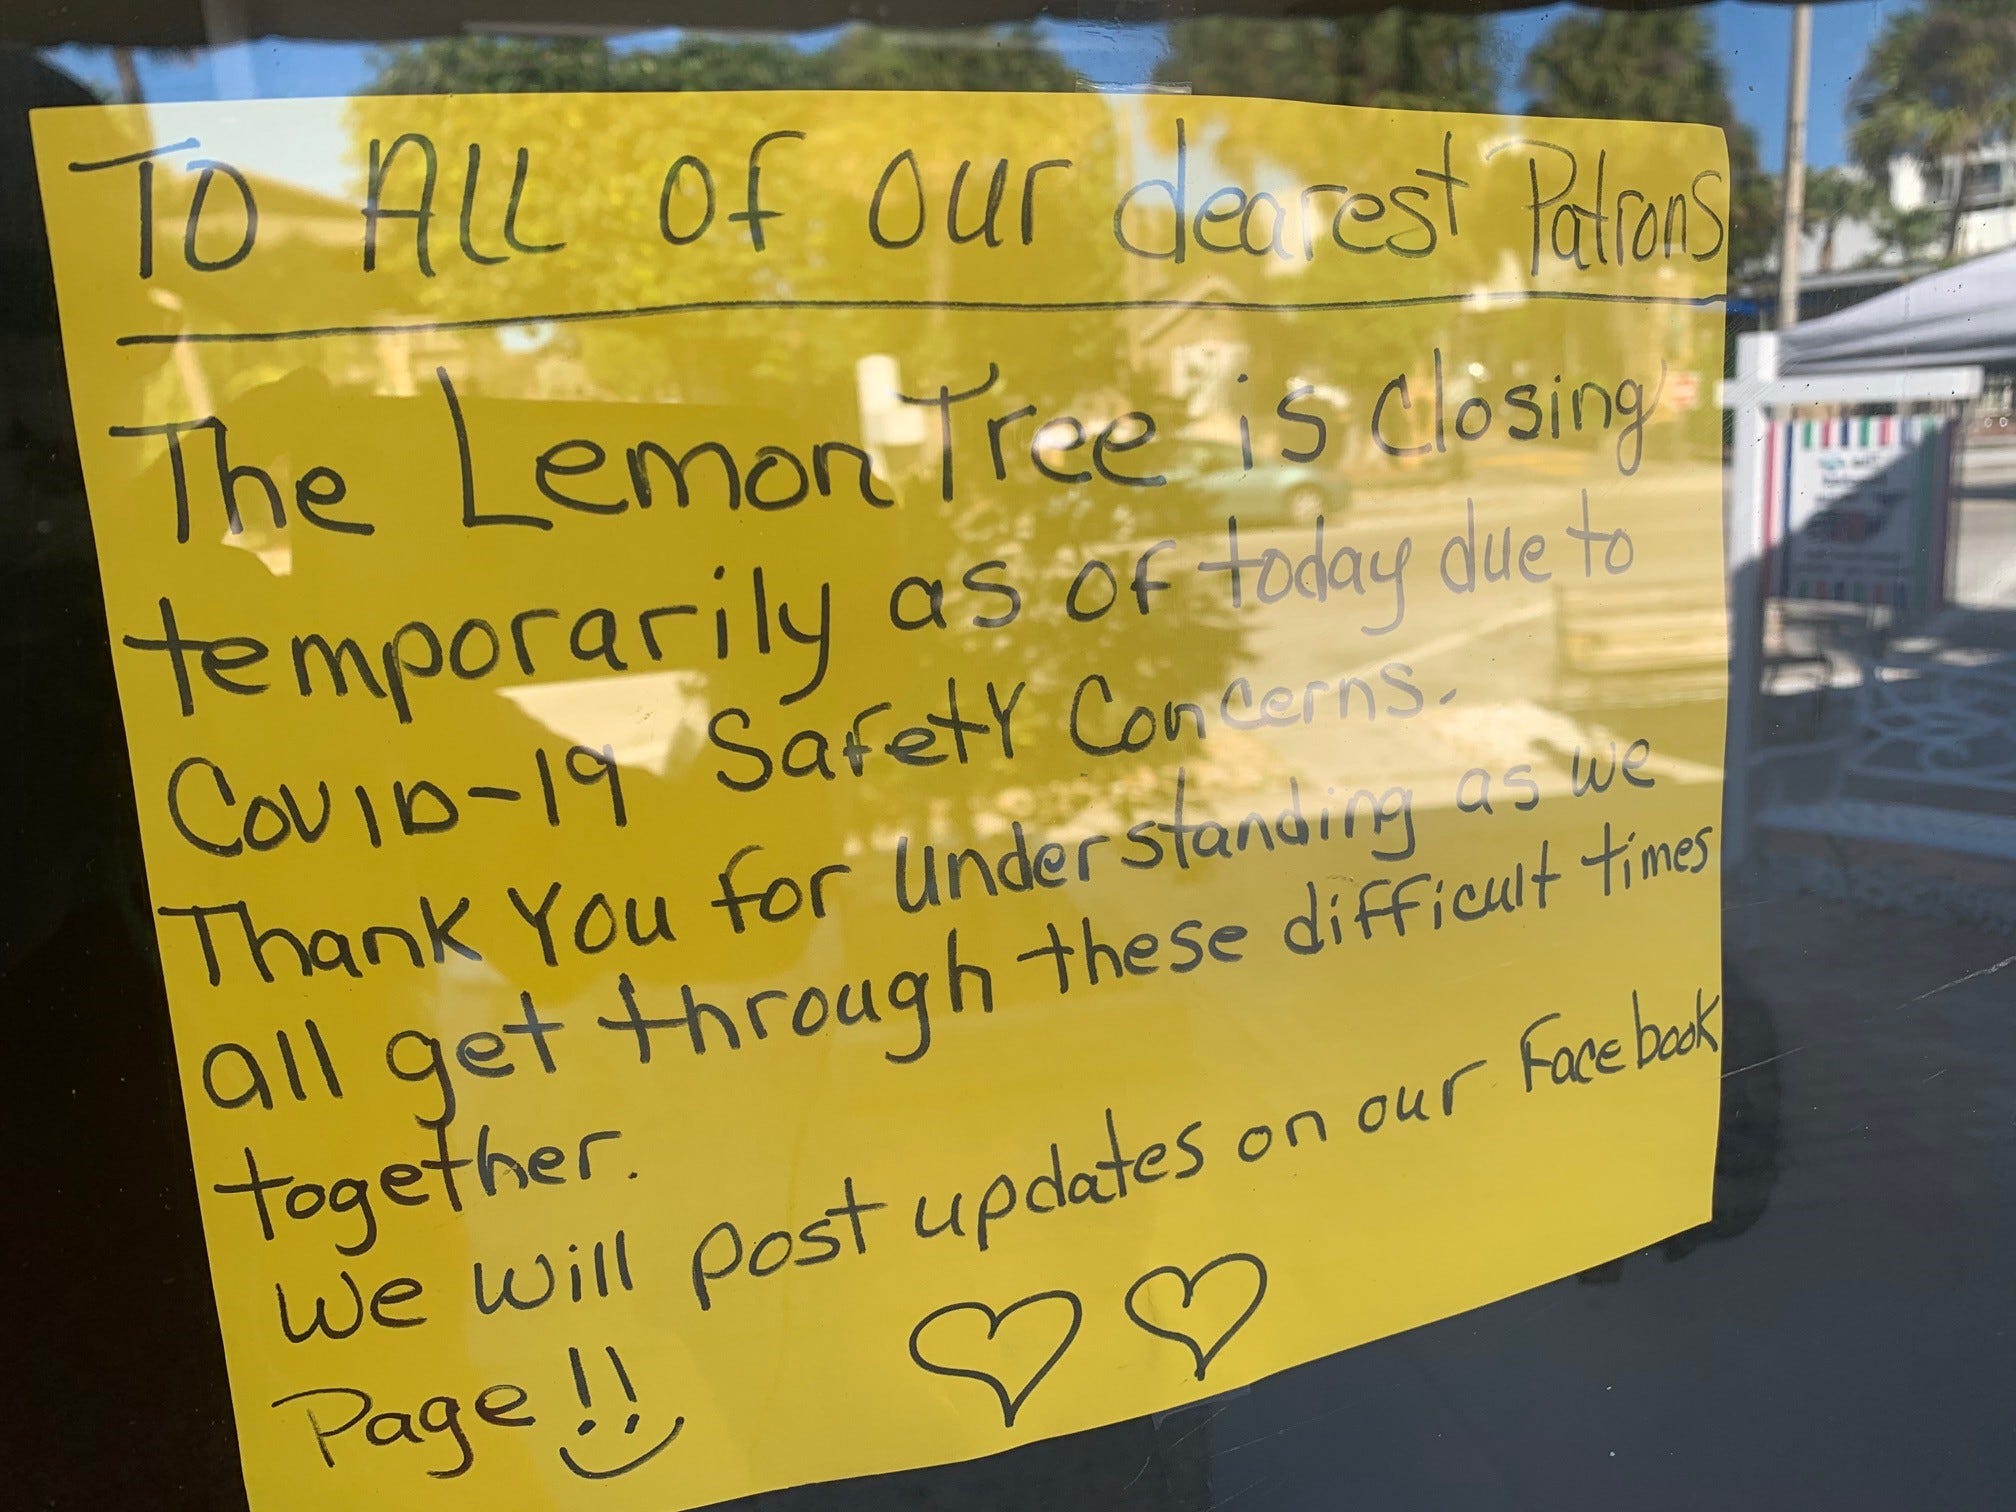 To All of our dearest Patrons
The Lemon Tree is Closing
temporarily as of today due to
Covid-19 Safety Concerns.
Thank You for understanding as we
all get through these difficult times
together.
We will post updates on our Facebook
Page!!